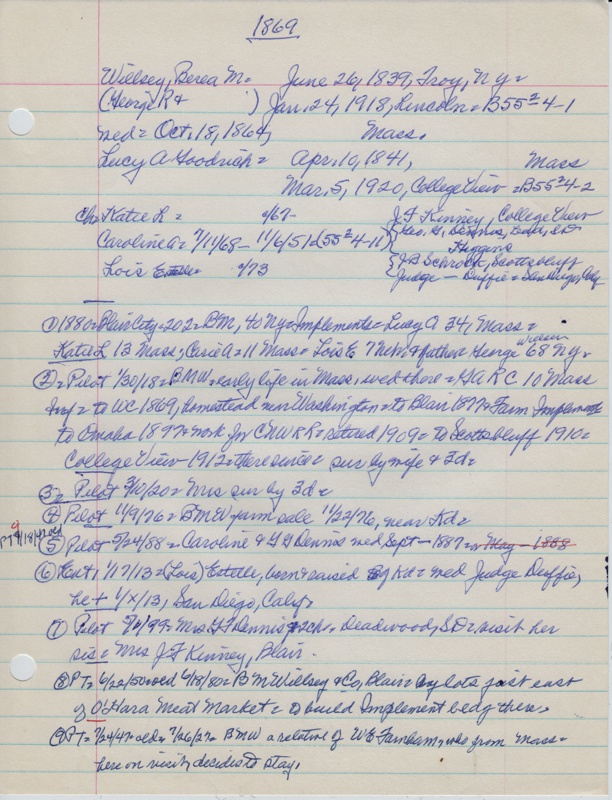 1869
Willsey, Berea M = June 26, 1839, Troy, N y =
(George R + ) Jan. 24, 1918, Lincoln = B55²4-1
wed = Oct. 18, 1864, Mass.
Lucy A Goodrich = Apr. 10, 1841, Mass
Mar. 5, 1920, College View = B55²4-2
ch = Katie L = /67- J F Kinney, College View
Caroline A = 7/11/68 - 11/6/51 (55²4-11) {Geo. G. Dennis,
Higgins
Lois Estelle /73 {J B Schrock, Scottsbluff
Judge — Duffie = San Diego, Calif
① 1880 = Blair City = 202 = BM, 40 Ny = Implements = Lucy A 34, Mass =
Katie L 13 Mass; Carie A = 11 Mass = Lois E 7 Nebr & father George Willsey 68 N y.
② = Pilot 1/30/18 = BMW = early life in Mass, wed there = GAR C 10 Mass
Inf = to WC 1869, homestead near Washington = to Blair 1877 = Farm Implements
to Omaha 1897 = work for CNW RR = retired 1909 = to Scottsbluff 1910 =
College View 1912 = there since = sur by wife & 3d =
③ = Pilot 3/10/20 = Mrs sur by 3d =
④ = Pilot 11/9/76 = BMW farm sale 11/22/76, near Kd =
PT 9/18/47
⑤ Pilot 5/24/88 = Caroline & G G Dennis wed Sept - 1887 = May - 1888
⑥ Ent, 1/17/13 = (Lois) Estelle, born & raised Kd = wed Judge Duffie,
he + 1/x/13, San Diego, Calif =
⑦ Pilot 99 = Mrs G G Dennis & 2ch = Deadwood, SD = visit her
sis = Mrs J F Kinney, Blair.
⑧ PT = 6/22/50 = old 6/18/80 = B M Willsey & Co, Blair = buy lots just east
of O'Hara Meat Market = to build Implement bldg there.
⑨ PT = 7/24/47 = old = 7/26/77 = BMW a relative of W E Farnham, who from Mass =
here on visit, decides to stay.